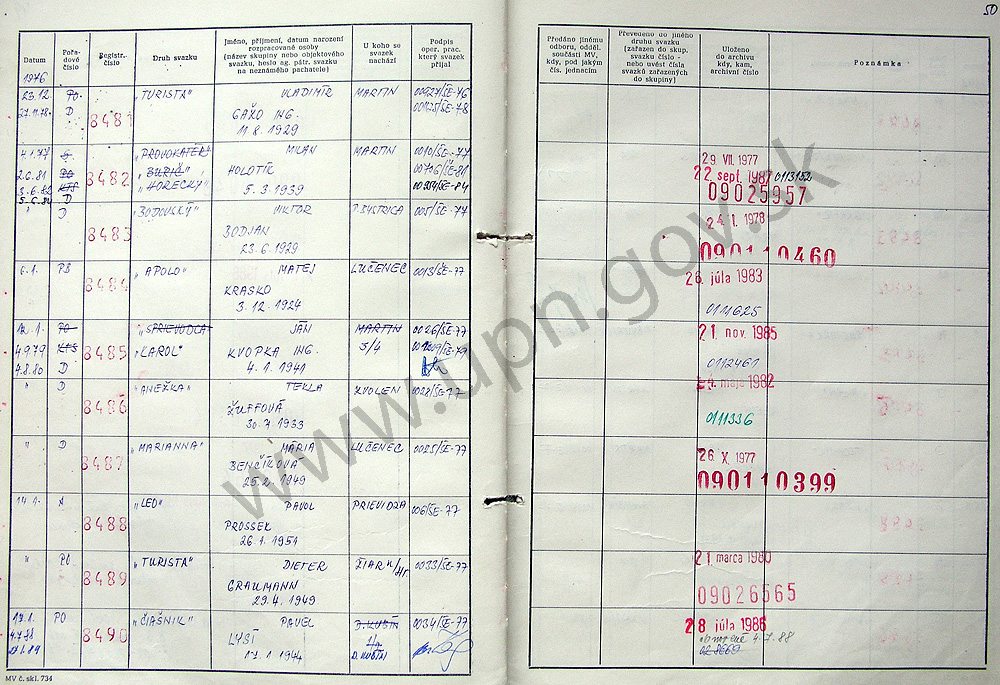 50
Datum
Pořa-
dové
číslo
Registr.
číslo
Druh svazku
Jméno, příjmení, datum narození
rozpracované osoby
(název skupiny nebo objektového
svazku, heslo ag. pátr. svazku
na neznámého pachatele)
U koho se
svazek
nachází
Podpis
oper. prac.
který svazek
přijal
Předáno jinému
odboru, odděl.
součásti MV,
kdy, pod jakým
čís. jednacím
Převedeno do jiného
druhu svazku
(zařazen do skup.
svazku číslo -
nebo uvést čísla
svazků zařazených
do skupiny)
Uloženo
do archivu
kdy, kam,
archivní číslo
Poznámka
1976
23.12. PO. „TURISTA" VLADIMÍR MARTIN 0027/ŠE-76
27.11.78. D 8481 GAŽO ING. 00125/ŠE-78
11. 8. 1929
4.1.77 „PROVOKATÉR" MILAN MARTIN 0010/ŠE-77 29 VII. 1977
2.6.81 PO 8482 HOLOTÍK 00706/ŠE-81 22 sept. 1987 0113152
3.6.82 KTS „HORECKÝ" 5. 3. 1939 09025957
D
" D „BODOVSKÝ" VIKTOR P. BYSTRICA 005/ŠE-77 24. I. 1978
8483 BODJAN 090110460
23. 6. 1929
6.1. PS „APOLO" MATEJ LUČENEC 0013/ŠE-77 26 júla 1983
8484 KRASKO 0111625
3. 12. 1924
PO „SPRIEVODCA" JÁN MARTIN 0026/ŠE-77 21 nov. 1985
4.9.79 KTS 8485 „KAROL" KVOPKA ING. 5/4 0112461
4.8.80 D 4. 1. 1941
" D „ANEŽKA" TEKLA ZVOLEN 0028/ŠE-77 24. mája 1982
8486 ŽUFFOVÁ 0111336
30. 7. 1933
" D „MARIANNA" MÁRIA LUČENEC 0025/ŠE-77 26 X. 1977
8487 BENČÍKOVÁ 090110399
25. 2. 1949
14.1. A „LED" PAVOL PRIEVIDZA 006/ŠE-77
8488 PROSSEK
26. 1. 1951
" PO „TURISTA" DIETER ŽIAR N/Hr. 0033/ŠE-77 21 marca 1980
8489 GRAUMANN 09026565
29. 4. 1949
PO „ČIAŠNIK" PAVEL 0034/ŠE-77 28 júla 1986
4.7.88 8490 LYSÍ obnovené 4. 7. 88
17. 1. 1944
MV č. skl. 734
www.upn.gov.sk